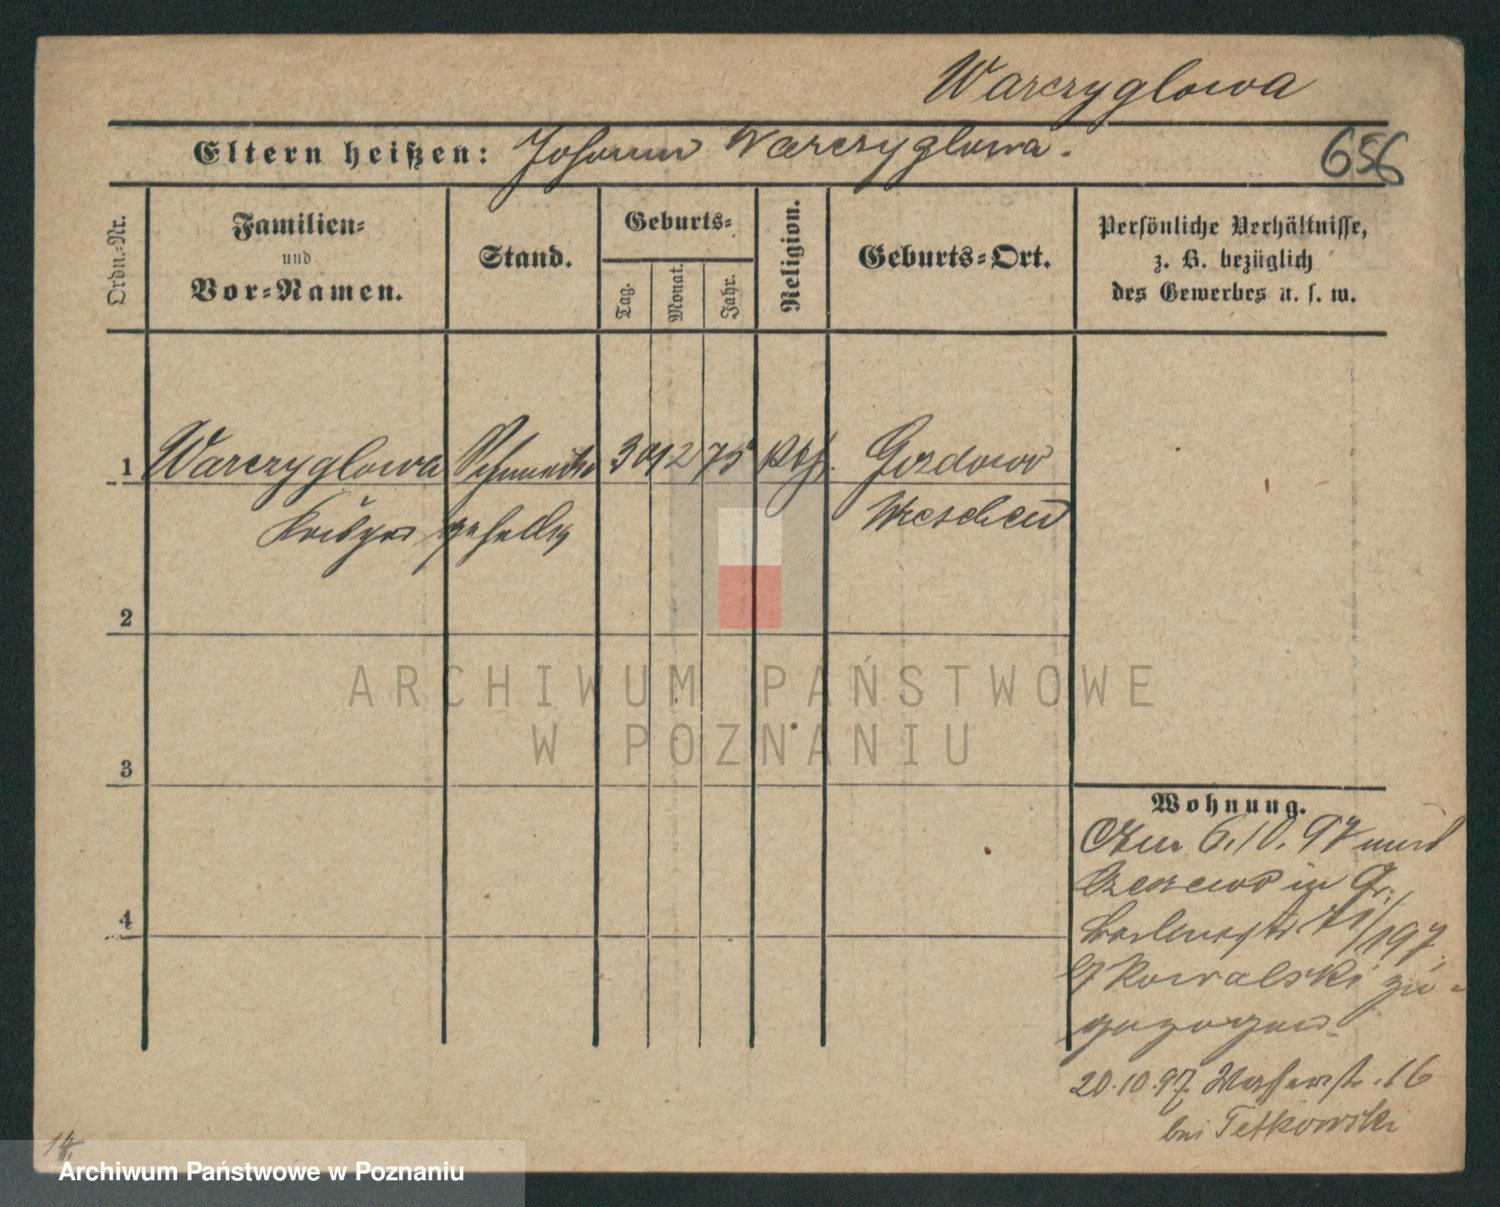 Warczyglowa
Eltern heißen: Johann Warczyglowa.
656
Ordn.-Nr.
Familien-
und
Vor-Namen.
Stand.
Geburts-
Tag.
Monat.
Jahr.
Religion.
Geburts-Ort.
Persönliche Verhältnisse,
z. B. bezüglich
des Gewerbes u. s. w.
1 Warczyglowa 30 12 75 kth. Gozdowo
Wreschen
2
3
4
Wohnung.
6.10.97
in Gr.
Kowalski zu-
gezogen
20.10.97. Wasserstr. 16
bei Tetkowski
14.
ARCHIWUM PAŃSTWOWE
W POZNANIU
Archiwum Państwowe w Poznaniu